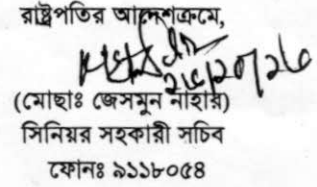 রাষ্ট্রপতির আদেশক্রমে,
(মোছাঃ জেসমুন নাহার)
সিনিয়র সহকারী সচিব
ফোনঃ ৯১১৮০৫৪